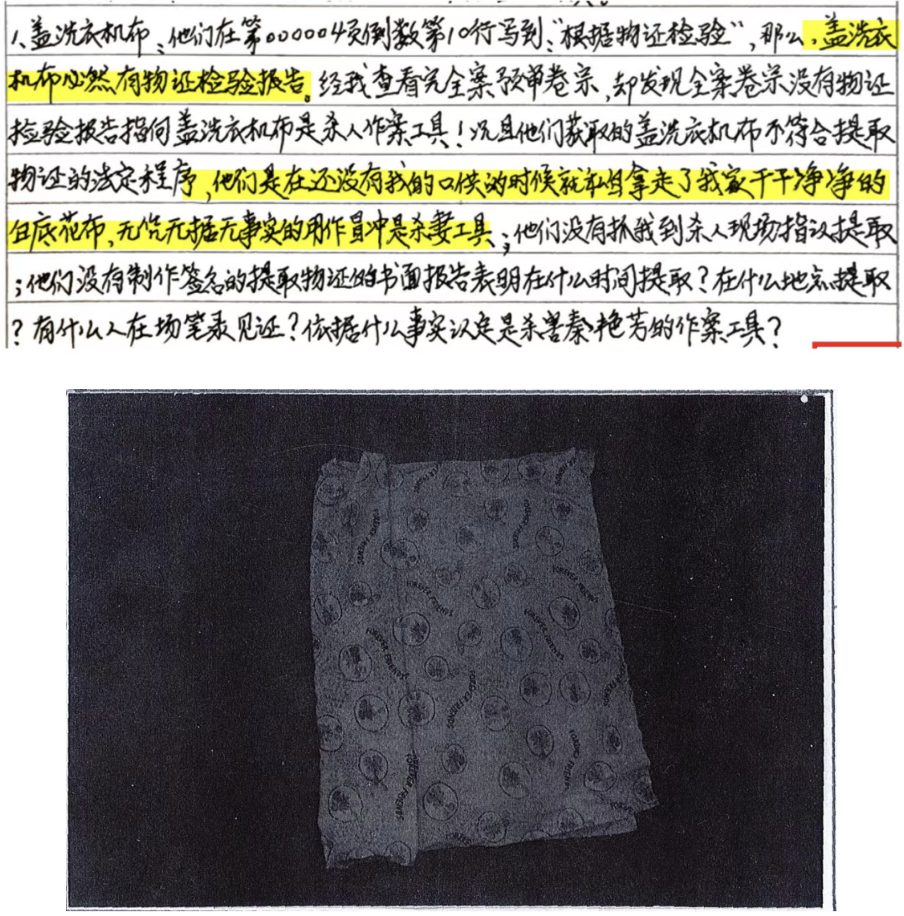 1、盖洗衣机布；他们在第000004页倒数第10行写到："根据物证检验"，那么，盖洗衣
机布必然有物证检验报告。经我查看完全案预审卷宗，却发现全案卷宗没有物证
检验报告指向盖洗衣机布是杀人作案工具！况且他们获取的盖洗衣机布不符合提取
物证的法定程序，他们是在还没有我的口供的时候就私自拿走了我家干干净净的
白底花布，无凭无据无事实的用作冒冲是杀妻工具；他们没有抓我到杀人现场指认提取
；他们没有制作签名的提取物证的书面报告表明在什么时间提取？在什么地点提取
？有什么人在场笔录见证？依据什么事实认定是杀害秦艳芳的作案工具？
FOREVER FRIENDS
FOREVER FRIENDS
FOREVER FRIENDS
FOREVER FRIENDS
FOREVER FRIENDS